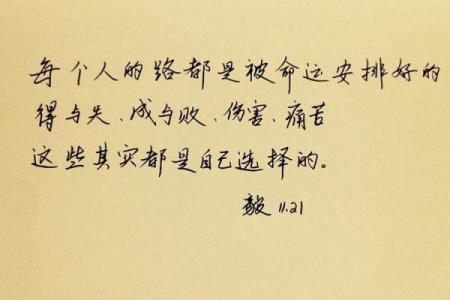 每个人的路都是被命运安排好的
得与失、成与败、伤害、痛苦
这些其实都是自己选择的。
毅 11.21